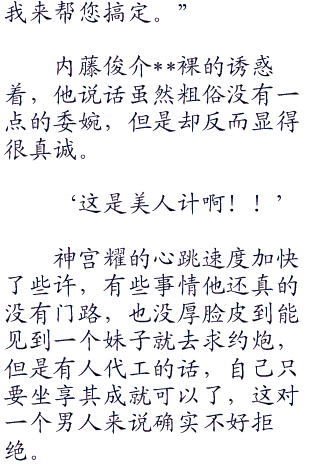 我来帮您搞定。”
内藤俊介**裸的诱惑
着，他说话虽然粗俗没有一
点的委婉，但是却反而显得
很真诚。
‘这是美人计啊！！’
神宫耀的心跳速度加快
了些许，有些事情他还真的
没有门路，也没厚脸皮到能
见到一个妹子就去求约炮，
但是有人代工的话，自己只
要坐享其成就可以了，这对
一个男人来说确实不好拒
绝。